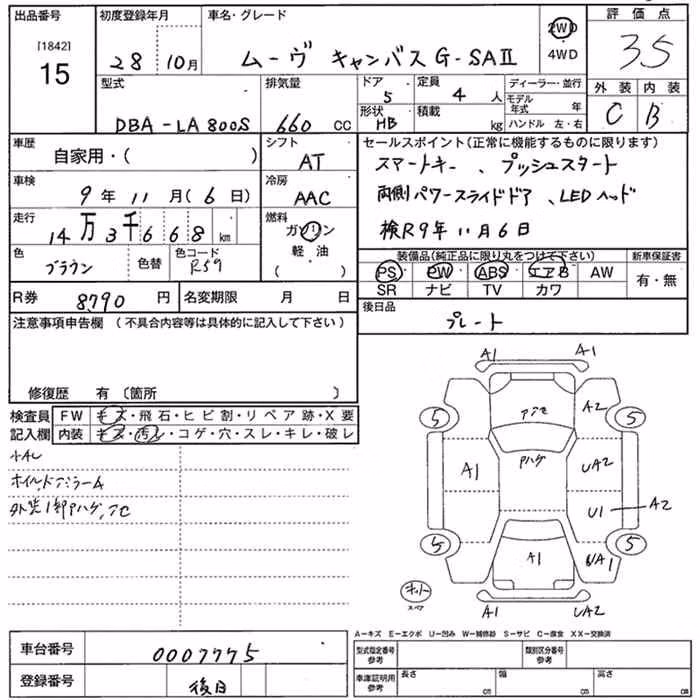 出品番号 初度登録年月 車名・グレード 評価点
[1842]
15 28 10月 ムーヴ キャンバス G-SAⅡ 2WD・4WD 35
型式 排気量 ドア 5 定員 4 人 ディーラー・並行 外装 内装
DBA-LA800S 660 CC 形状 HB 積載 kg モデル年式 年 C B
ハンドル 左・右
車歴 自家用・( ) シフト AT セールスポイント(正常に機能するものに限ります)
スマートキー、プッシュスタート
車検 9年 11月(6日) 冷房 AAC 両側パワースライドドア、LEDヘッド
走行 14万3千668km 燃料 ガソリン 軽油 ( ) 検R9年11月6日
色 ブラウン 色替 色コード R59 装備品(純正品に限り丸をつけて下さい) 新車保証書
PS PW ABS エアB AW 有・無
R券 8790円 名変期限 月 日 SR ナビ TV カワ
注意事項申告欄 (不具合内容等は具体的に記入して下さい) 後日品
プレート
修復歴 有 〔箇所 〕
検査員 FW キズ・飛石・ヒビ割・リペア跡・X要
記入欄 内装 キズ・汚レ・コゲ・穴・スレ・キレ・破レ
小AU
ホイルドアミラーA
A1 A1
5 A2 5
A1 Pハゲ UA2
U1 A2
5 A1 5
スペア A1 UA2
A-キズ E-エクボ U-凹み W-補修跡 S-サビ C-腐食 XX-交換済
車台番号 0007775 型式指定番号 参考 類別区分番号 参考
登録番号 後日 車庫証明用 参考 長さ cm 幅 cm 高さ cm